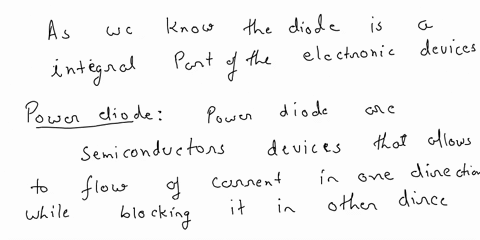 As we know the diode is a
integral Part of the electronic devices
Power diode: Power diode are
semiconductors devices that allows
to flow of current in one direction
while blocking it in other direc